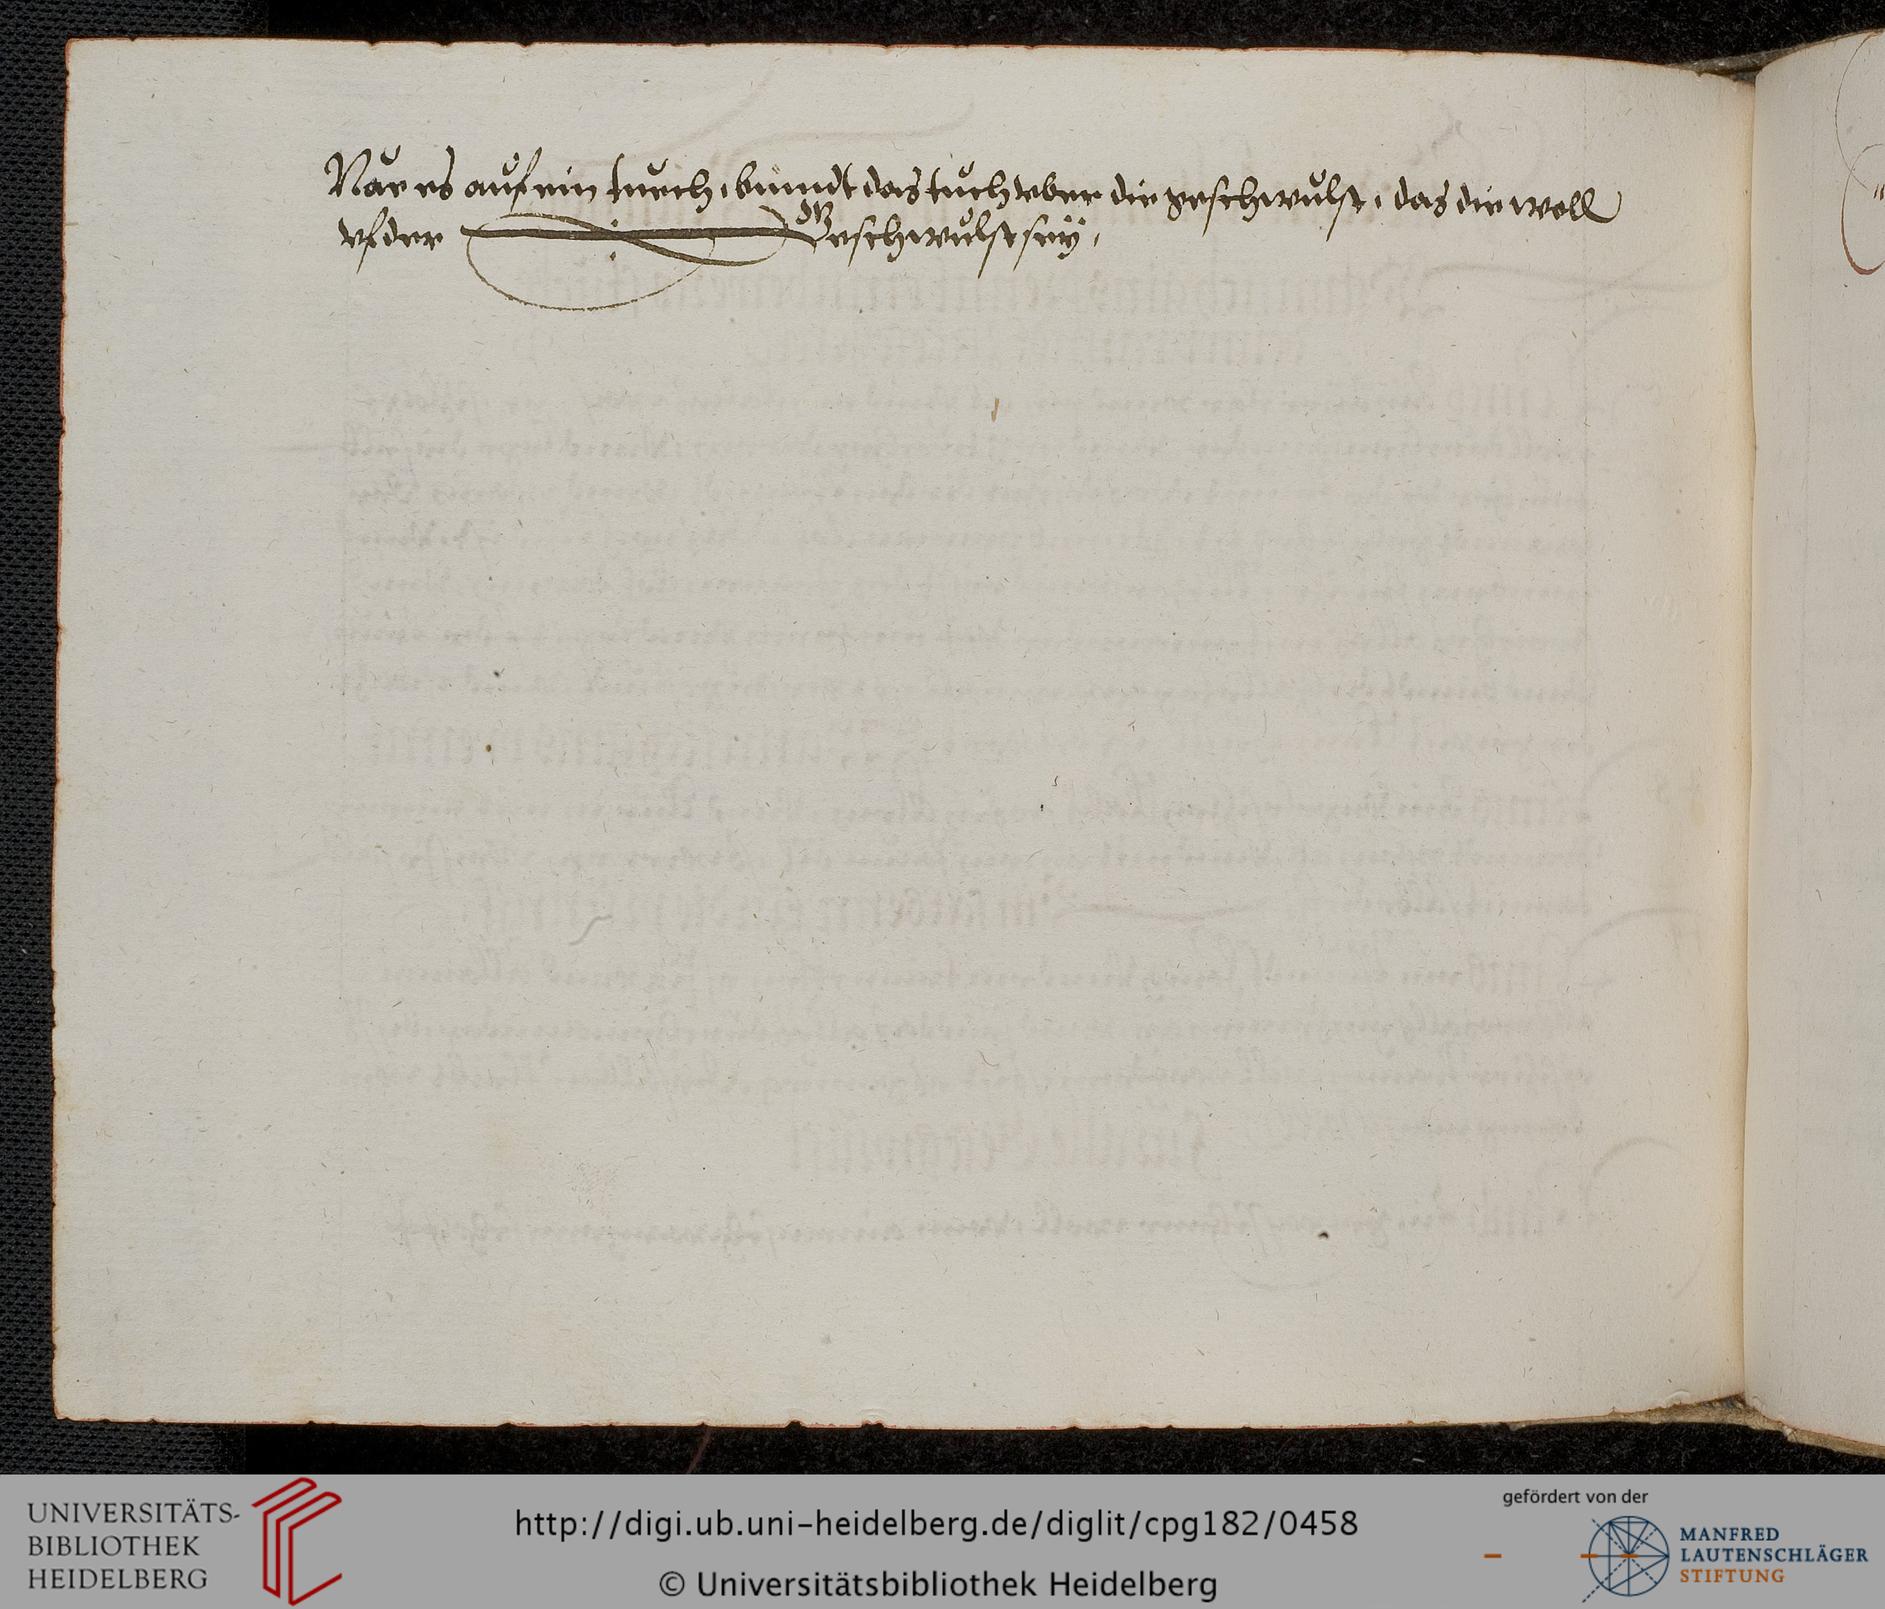 Nae es auf ein tuech, bündt das tuch vber die geschwulst, das die woll
vf der Geschwulst sey,
UNIVERSITÄTS-
BIBLIOTHEK
HEIDELBERG
http://digi.ub.uni-heidelberg.de/diglit/cpg182/0458
© Universitätsbibliothek Heidelberg
gefördert von der
MANFRED
LAUTENSCHLÄGER
STIFTUNG